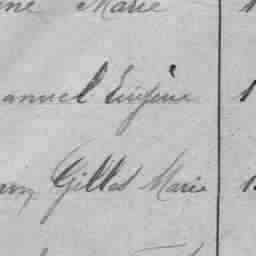 ne Marie 1
anuel Eugène 1
Gilles Marie 1